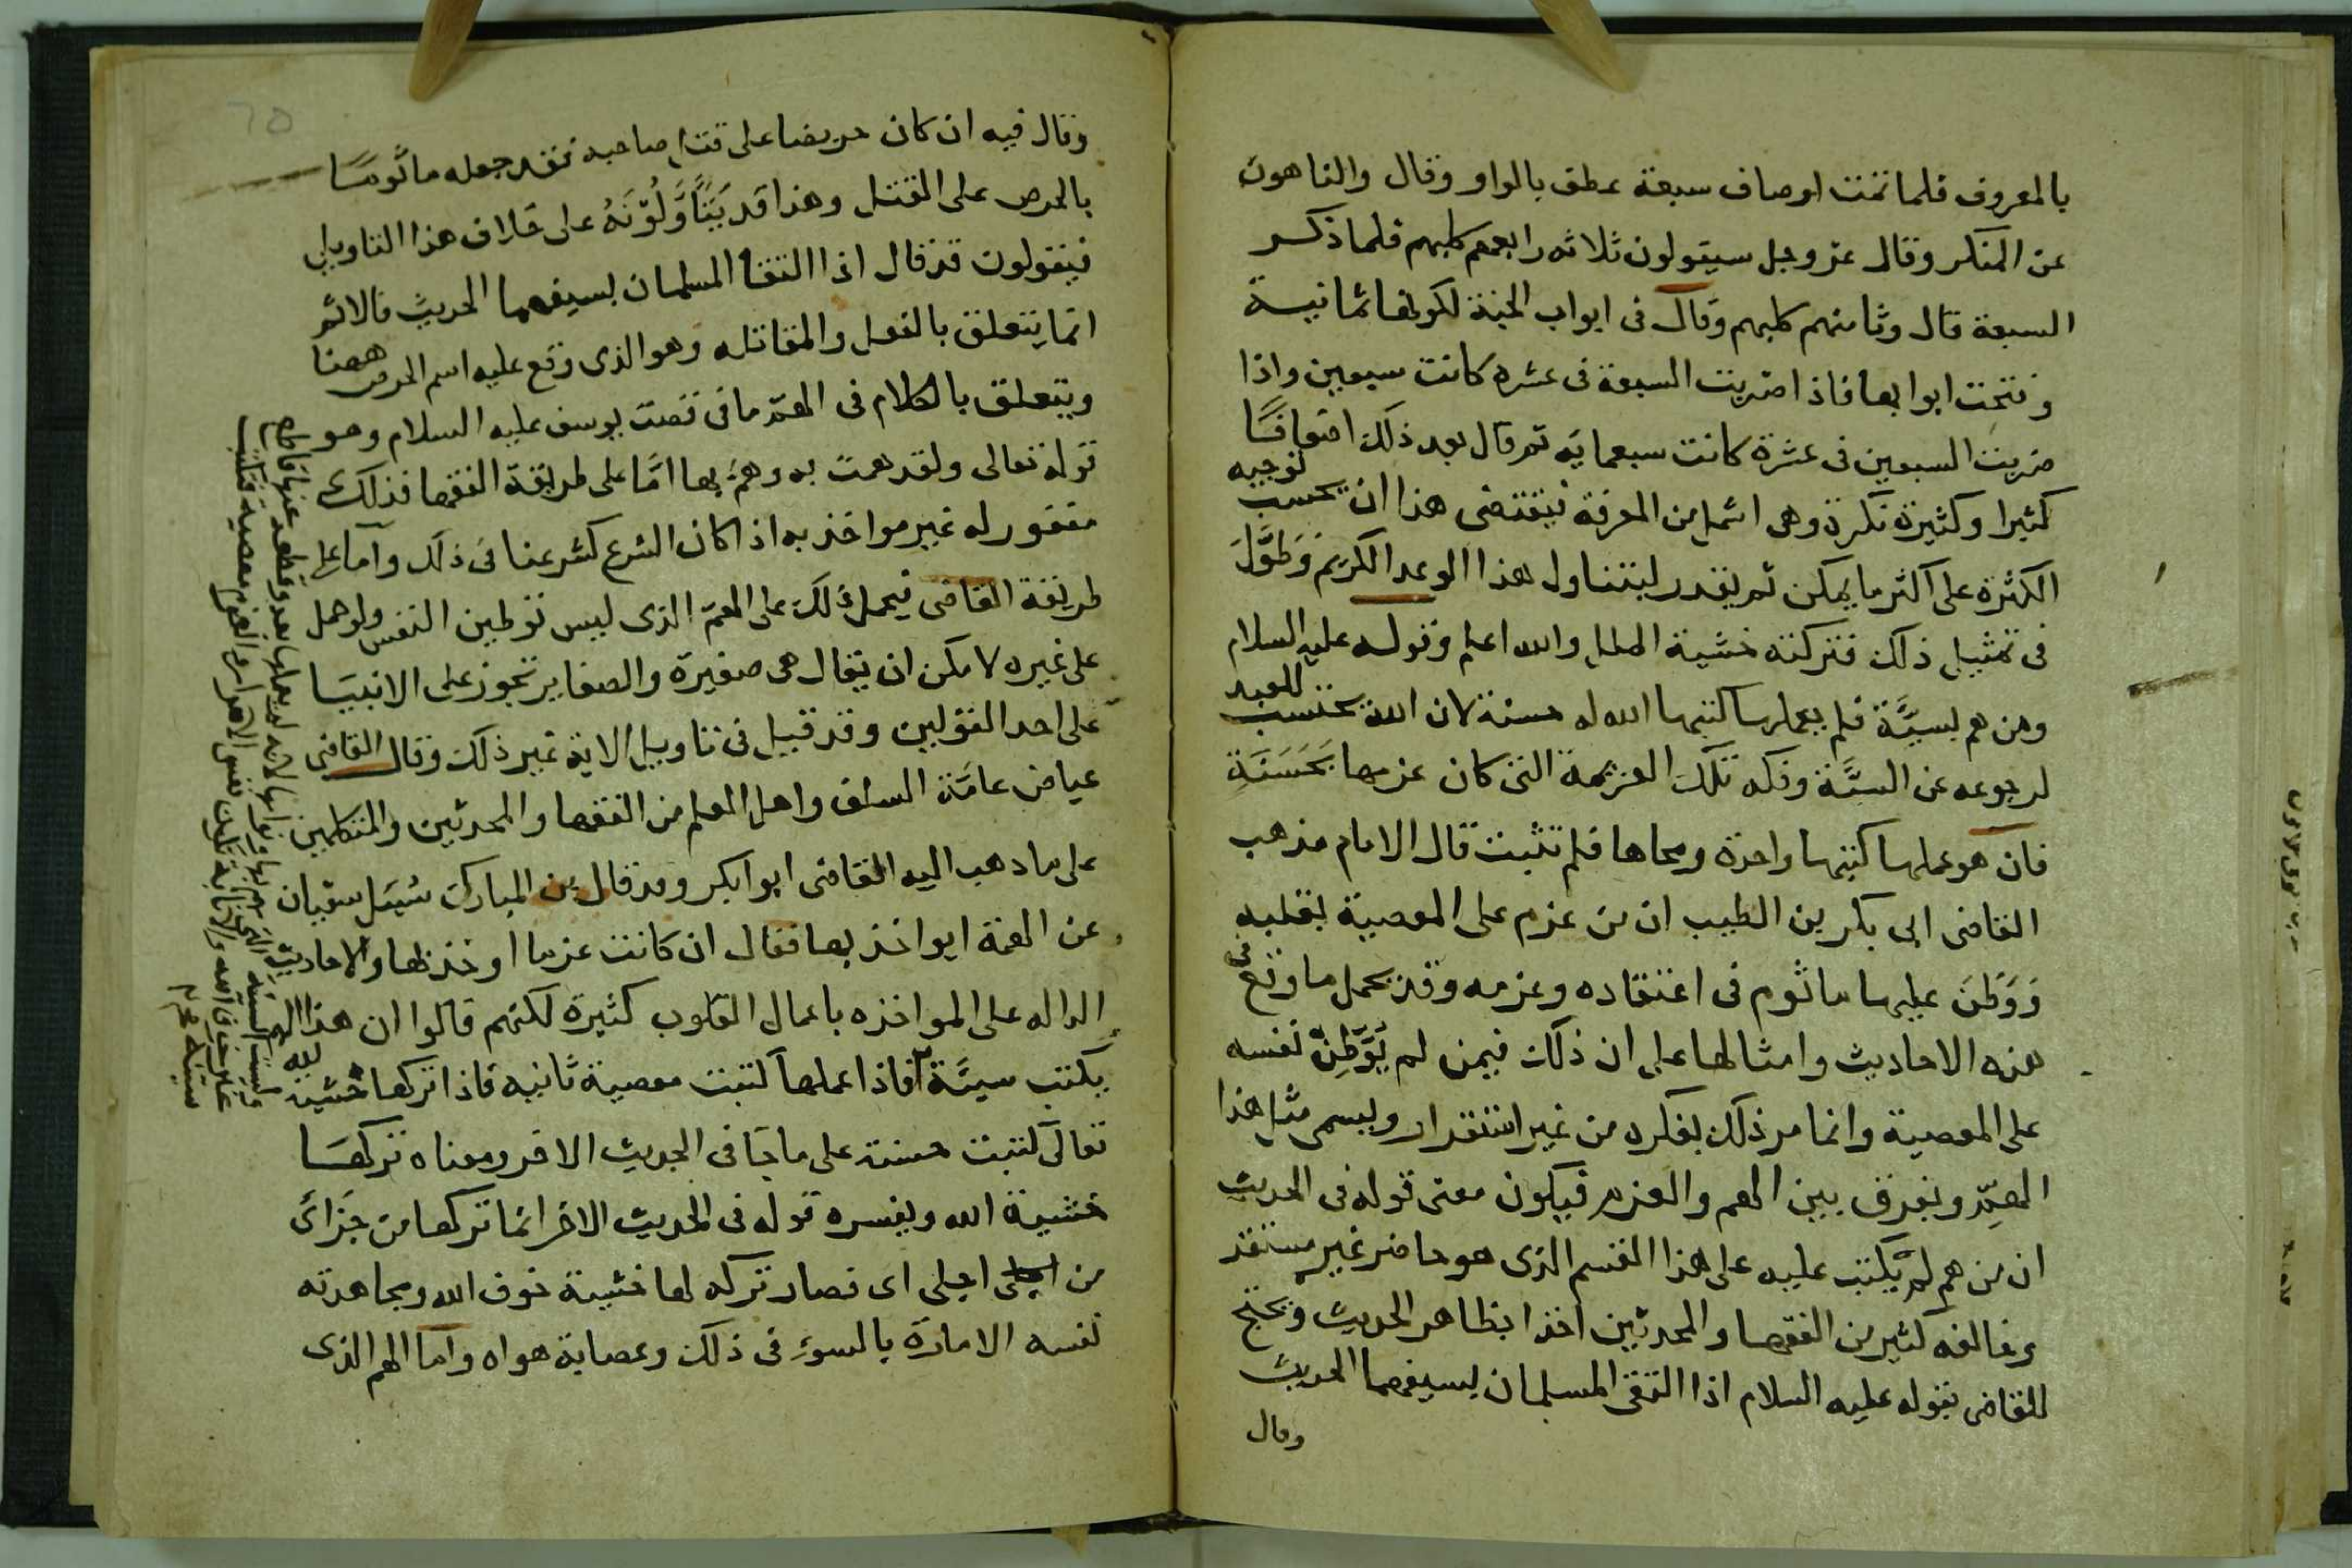 بالمعروف فلما تمت اوصاف سبعة عطف بالواو وقال والناهون
عن المنكر وقال عز وجل سيقولون ثلاثه رابعهم كلبهم فلما ذكر
السبعة قال وثامنهم كلبهم وقال فى ابواب الجنة لكونها ثمانية
وفتحت ابوابها فاذا ضربت السبعة فى عشرة كانت سبعين واذا
ضربت السبعين فى عشرة كانت سبعمايه ثم قال بعد ذلك اضعافًا
كثيرا وكثيرة نكرة وهى اشمل من المعرفة فيقتضى هذا ان يحسب توجيه
الكثرة على اكثر ما يمكن ثم يقدر ليتناول هذا الوعد الكريم وَطَوَّلَ
فى تمثيل ذلك فتركته خشية الملل والله اعلم وقوله عليه السلام
ومن هم بسيَّة فلم يعملها كتبها الله له حسنة لان الله يحتسب للعبد
لرجوعه عن السيَّة وفكه تلك العزيمة التى كان عزمها بحَسَنَةِ
فان هو عملها كتبها واحدة ومحاها فلم تثبت قال الامام مذهب
القاضى ابى بكر بن الطيب ان من عزم على المعصية بقلبه
وَوَطَنَ عليها ماثوم فى اعتقاده وعزمه وقد يحمل ما وقع فى
هذه الاحاديث وامثالها على ان ذلك فيمن لم يُوَطِنْ نفسه
على المعصية وانما مر ذلك بفكره من غير استقرار ويسمى مثل هذا
الهمِّ ويفرق بين الهم والعزم فيكون معنى قوله فى الحديث
ان من هم لم يكتب عليه على هذا القسم الذى هو حاضر غير مستقر
وخالفه كثير من الفقها والمحدثين اخذا بظاهر الحديث ويحتج
للقاضى بقوله عليه السلام اذا التقى المسلمان بسيفهما الحديث
وقال
وقال فيه ان كان حريصا على قتل صاحبه فقد جعله ماثومًا
بالحرص على القتل وهذا قد يَتَأَوَّلُوْنَهُ على خلاف هذا التاويل
فيقولون قد قال اذا التقا المسلمان بسيفهما الحديث فالاثم
انما يتعلق بالفعل والمقاتله وهو الذى وقع عليه اسم الحرص ههنا
ويتعلق بالكلام فى الهمّ ما فى قصت يوسف عليه السلام وهو
قوله تعالى ولقد همت به وهمَّ بها امَّا على طريقة الفقها فذلك
مغفور له غير مواخذ به اذا كان الشرع كشرعنا فى ذلك وامّا على
طريقة القاضى فيحمل ذلك على الهمّ الذى ليس توطين النفس ولو حمل
على غيره لامكن ان يقال هى صغيرة والصغاير تجوز على الانبيَا
على احد القولين وقد قيل فى تاويل الاية غير ذلك وقال القاضى
عياض عامَّة السلف واهل العلم من الفقها والمحدثين والمتكلمين
على ما دهب اليه القاضى ابوابكر وقد قال بن المبارك سَيَل سفيان
عن الهمة ايواخذ بها فقال ان كانت عزما اوخذ بها والاحاديث
الداله على المواخذه باعمال القلوب كثيرة لكنهم قالوا ان هذا الهم
يكتب سيَّة فاذا عملها كتبت معصية ثانيه فاذا تركها خشية لله
تعالى كتبت حسنة على ما جَا فى الحديث الاخر ومعناه تركهَا
خشية الله ويفسره قوله فى الحديث الاخر انما تركها من جَزَائ
من اجلى اى فصار تركه لها خشية خوف الله ومجاهدته
نفسه الامارة بالسوء فى ذلك وعصاية هواه واما الهم الذى